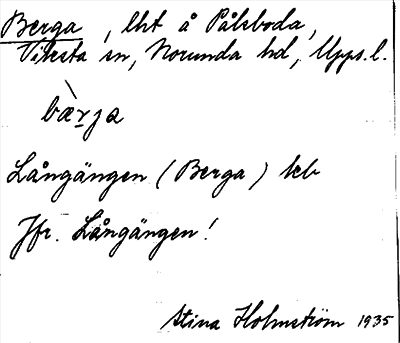 Berga, lht å Pålsboda,
Viksta sn, Norunda hd, Upps. l.
bæ̀rja
Långängen (Berga) kb
Jfr. Långängen!
Stina Holmström 1935